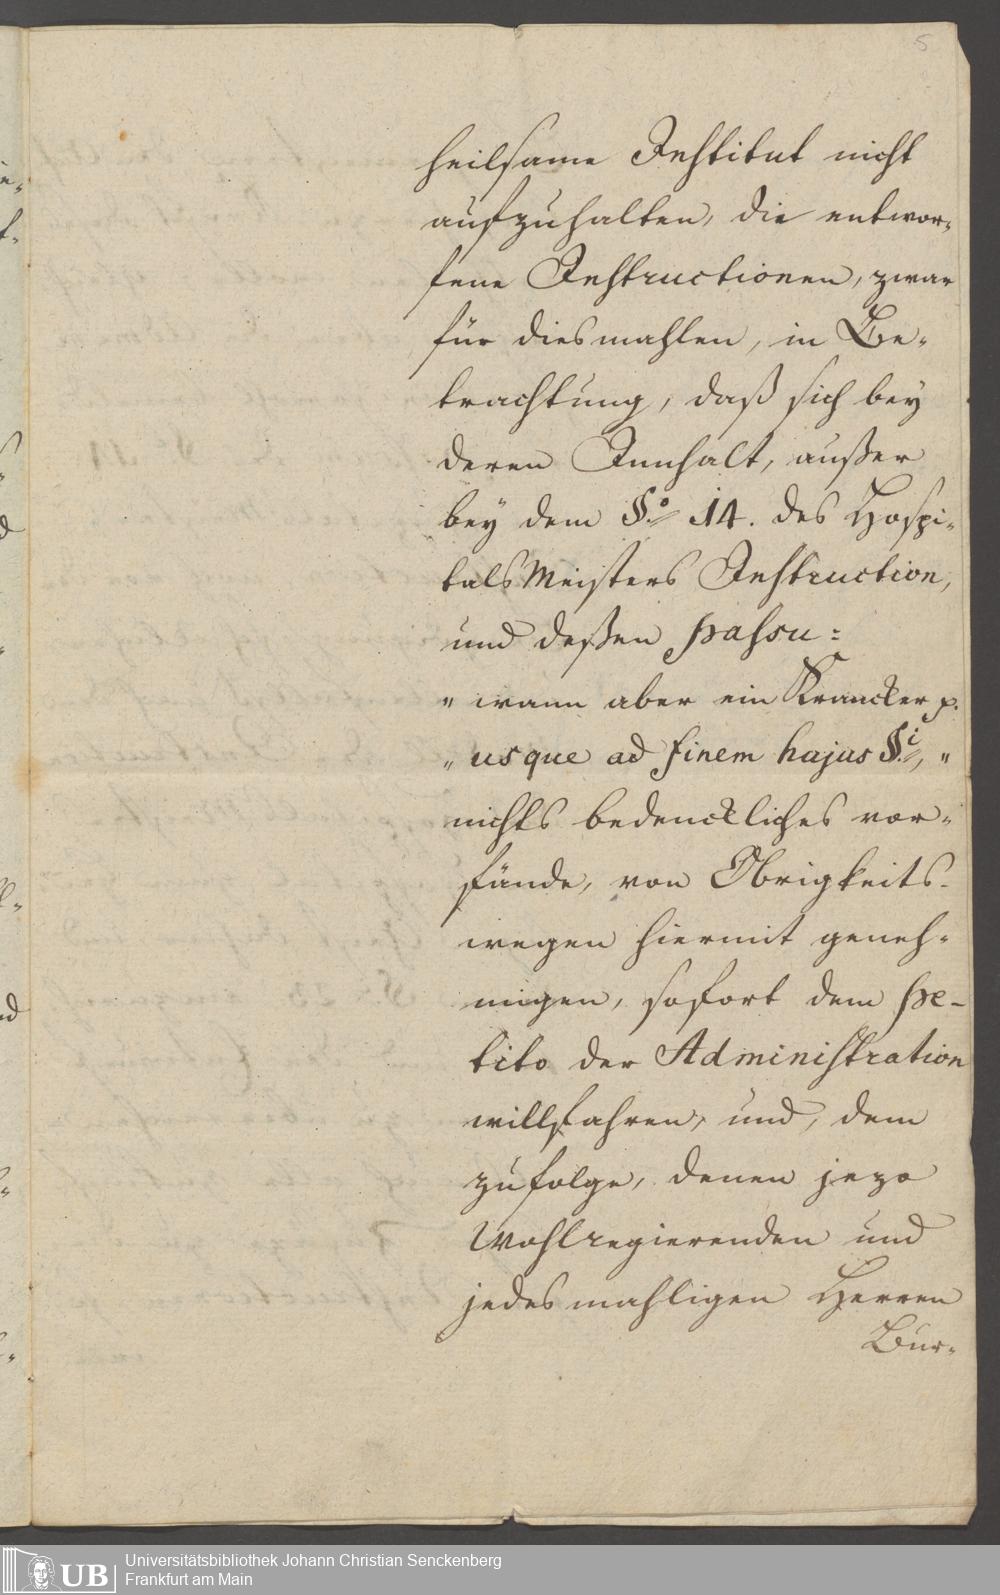 5
heilsame Institut nicht
aufzuhalten, die entwor-
fene Instructionen, zwar
für diesmahlen, in Be-
trachtung, daß sich bey
deren Innhalt, außer
bey dem §.º 14. des Hospi-
talsMeisters Instruction,
und deßen passu:
" wann aber ein Krancker p.
" usque ad finem hujus §.i, "
nichts bedenckliches vor-
fände, von Obrigkeits-
wegen hiermit geneh-
migen, sofort dem pe-
tito der Administration
willfahren, und, dem
zufolge, denen jezo
Wohlregierenden und
jedesmahligen Herren
Bur-
UB
Universitätsbibliothek Johann Christian Senckenberg
Frankfurt am Main